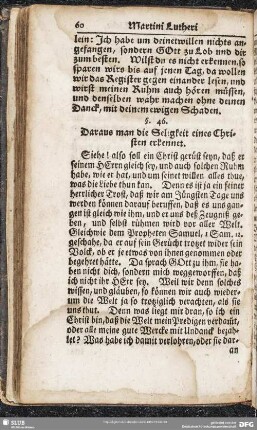 60 Martini Lutheri
lein: Ich habe um deinetwillen nichts an-
gefangen, sondern GOtt zu Lob und dir
zum besten. Wilstdu es nicht erkennen, so
sparen wirs bis auf jenen Tag, da wollen
wir das Register gegen einander lesen, und
wirst meinen Ruhm auch hören müssen,
und denselben wahr machen ohne deinen
Danck, mit deinem ewigen Schaden.
§. 46.
Daraus man die Seligkeit eines Chri-
sten erkennet.
Siehe! also soll ein Christ gerüst seyn, daß er
seinem HErrn gleich sey, und auch solchen Ruhm
habe, wie er hat, und um seinet willen alles thue,
was die Liebe thun kan. Denn es ist ja ein seiner
herrlicher Trost, daß wir am Jüngsten Tage uns
werden können darauf beruffen, daß es uns gan-
gen ist gleich wie ihm, und er uns deß Zeugniß ge-
ben, und selbst rühmen wird vor aller Welt.
Gleichwie dem Propheten Samuel, 1 Sam. 12.
geschahe, da er auf sein Gerücht trotzet wider sein
Volck, ob er je etwas von ihnen genommen oder
begehret hätte. Da sprach GOtt zu ihm, sie ha-
ben nicht dich, sondern mich weggeworffen, daß
ich nicht ihr HErr sey. Weil wir denn solches
wissen, und glauben, so können wir auch wieder-
um die Welt ja so trotziglich verachten, als sie
uns thut. Denn was liegt mir dran, so ich ein
Christ bin, daß die Welt mein Predigen verdamt,
oder alle meine gute Wercke mit Undanck bezah-
let? Was habe ich damit verlohren, oder sie dar-
an
SLUB
DFG